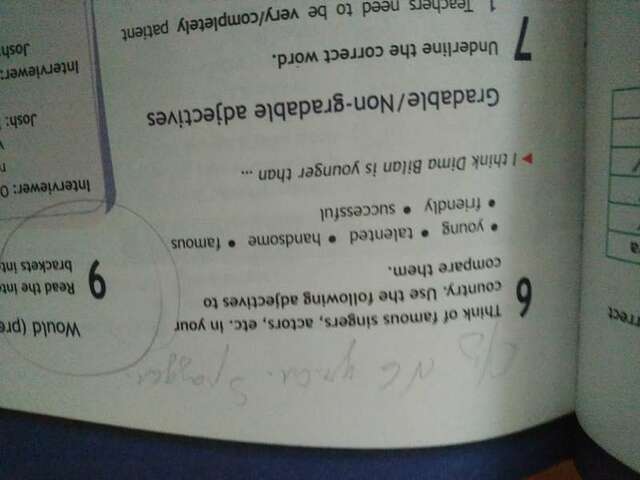 6 Think of famous singers, actors, etc. in your
country. Use the following adjectives to
compare them.
• young • talented • handsome • famous
• friendly • successful
▶ I think Dima Bilan is younger than ...
Gradable/Non-gradable adjectives
7 Underline the correct word.
1 Teachers need to be very/completely patient
Would (pre
9 Read the inte
brackets int
Interviewer: O
Josh:
Interviewer:
Josh:
rrect